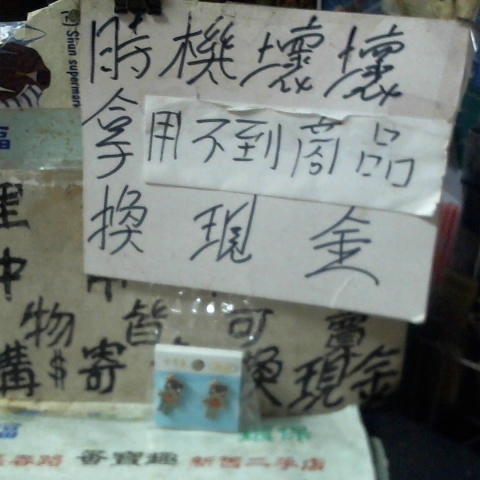 時機壞壞
拿用不到商品
換現金
Sinun superman
福
里
中
物皆可賣
購$寄換現金
福
香寶趣 新舊二手店